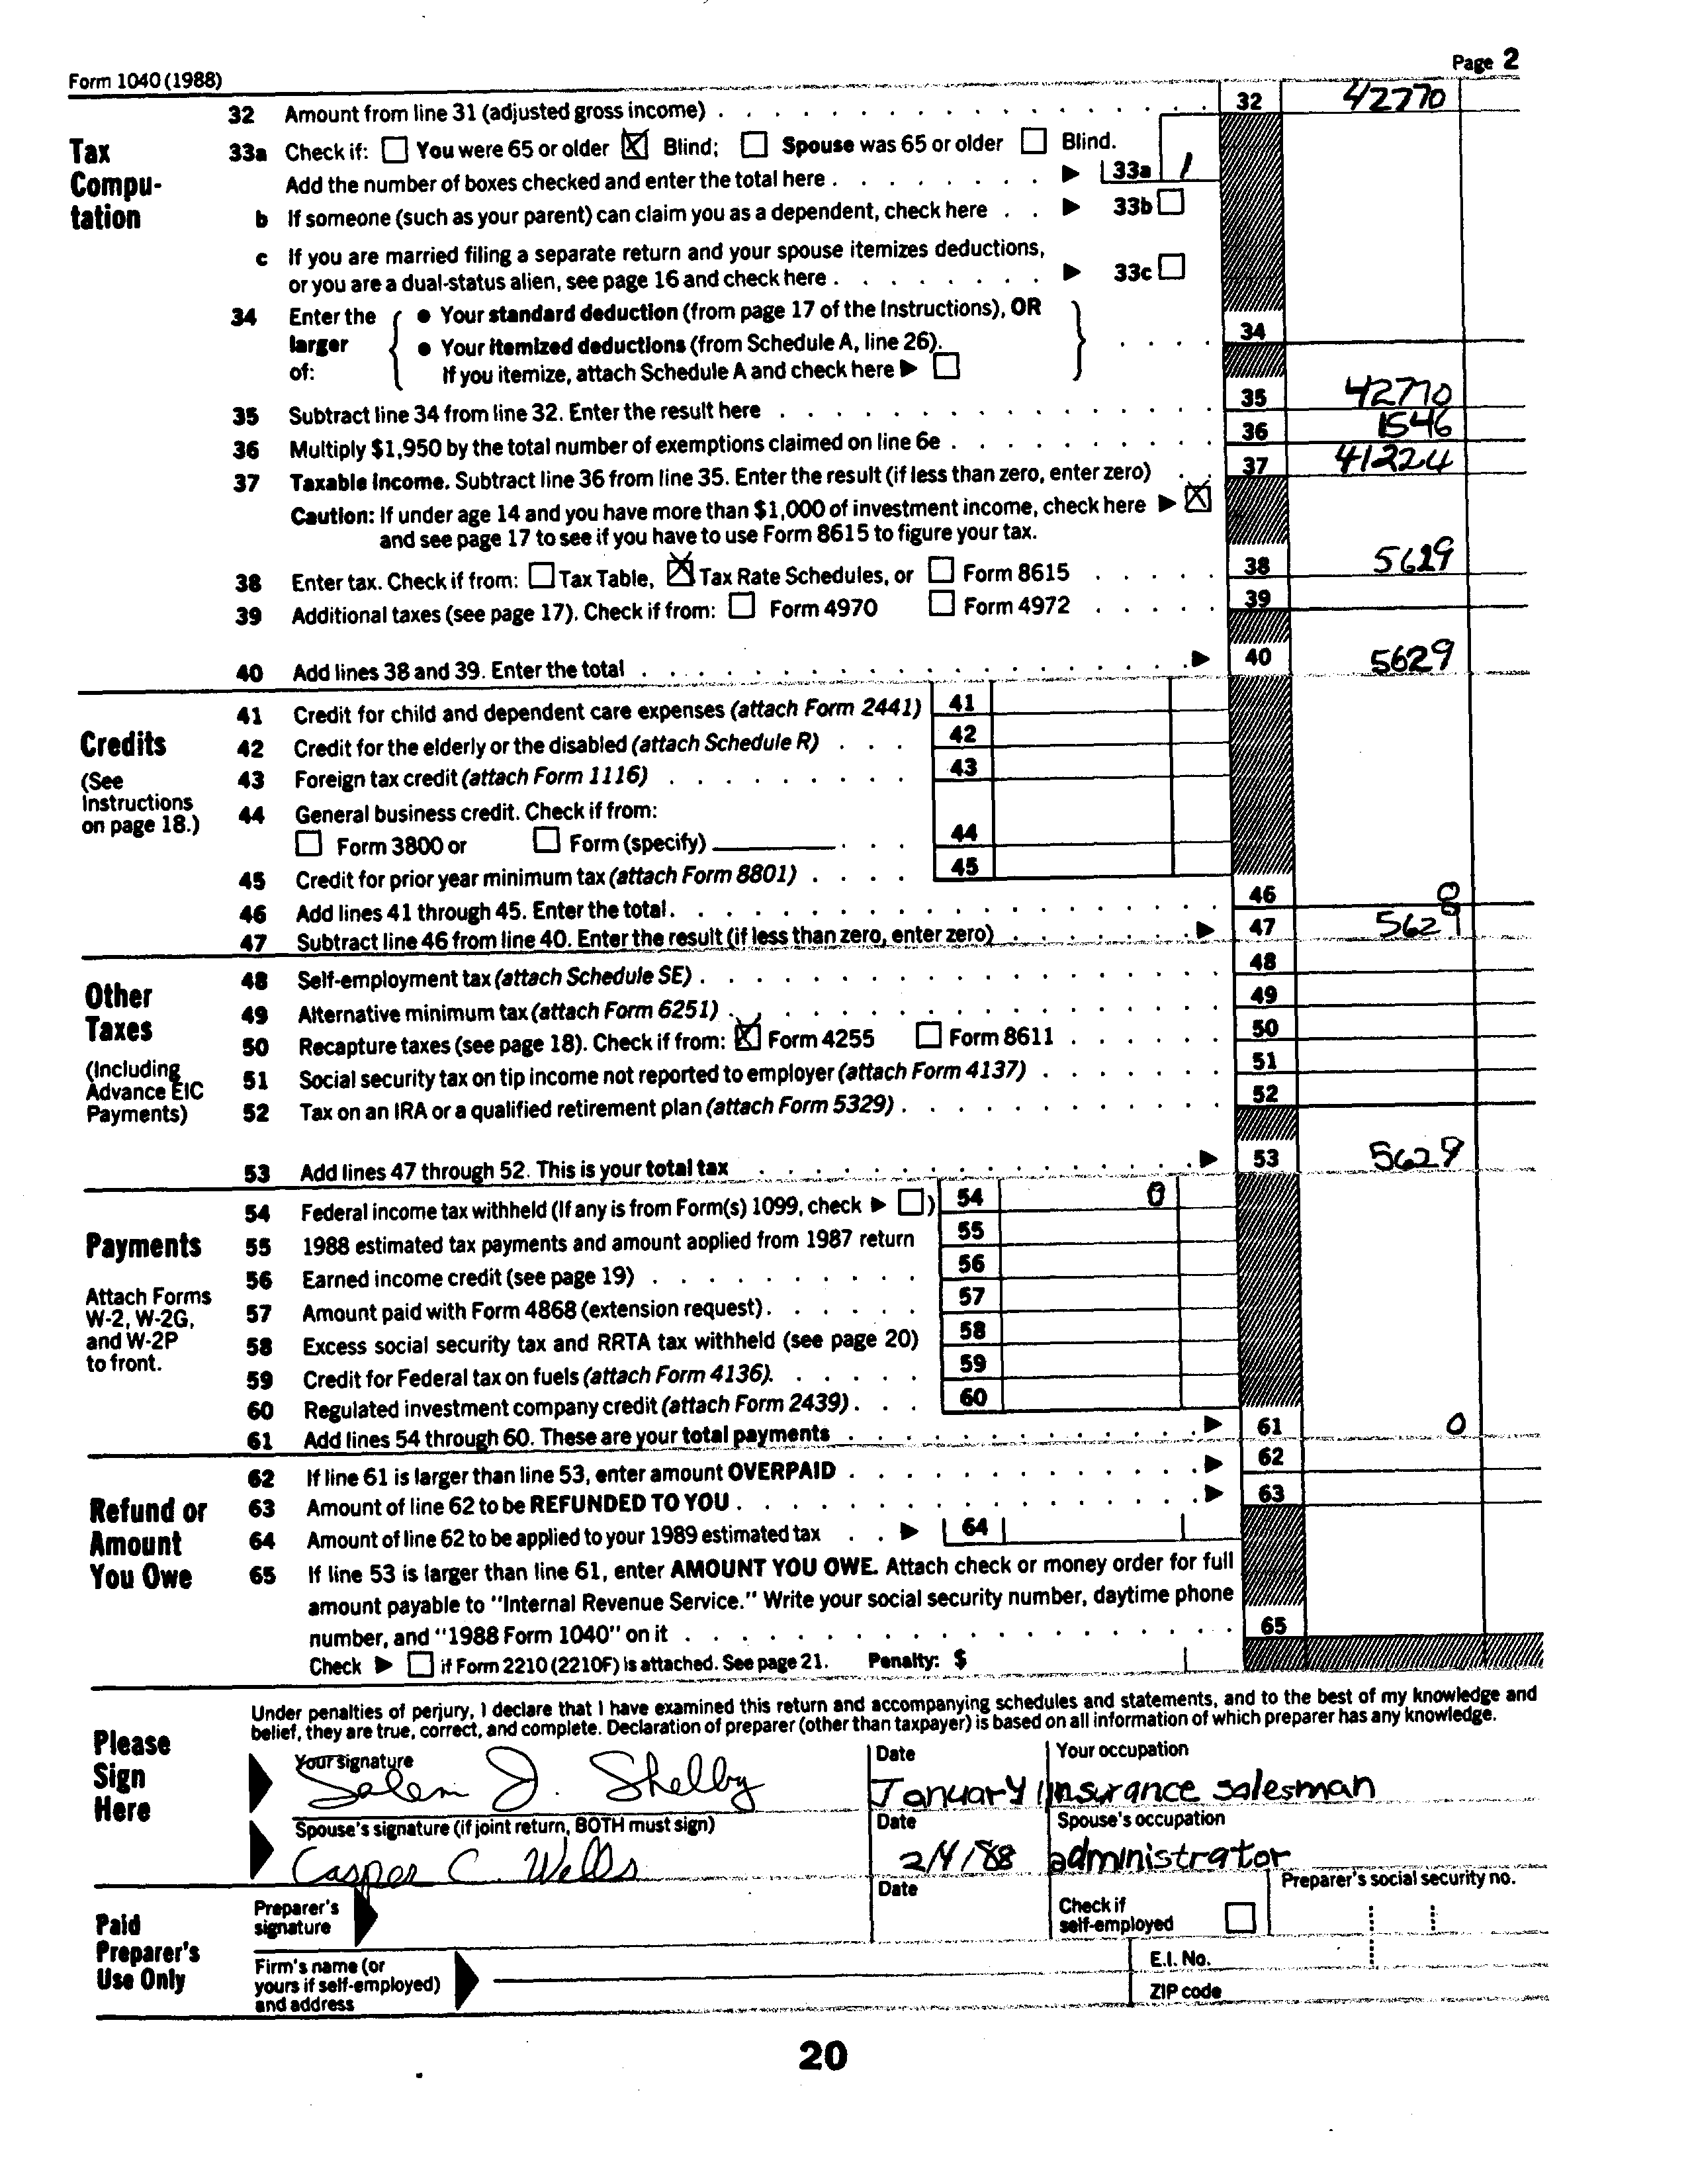 Form 1040 (1988) Page 2
32 Amount from line 31 (adjusted gross income) . . . 32 42770
Tax Compu- tation
33a Check if: You were 65 or older Blind; Spouse was 65 or older Blind.
Add the number of boxes checked and enter the total here . . . 33a 1
b If someone (such as your parent) can claim you as a dependent, check here . . 33b
c If you are married filing a separate return and your spouse itemizes deductions,
or you are a dual-status alien, see page 16 and check here . . . 33c
34 Enter the larger of:
• Your standard deduction (from page 17 of the Instructions), OR
• Your itemized deductions (from Schedule A, line 26).
If you itemize, attach Schedule A and check here
34
35 Subtract line 34 from line 32. Enter the result here . . . 35 42770
36 Multiply $1,950 by the total number of exemptions claimed on line 6e . . . 36 1546
37 Taxable income. Subtract line 36 from line 35. Enter the result (if less than zero, enter zero) . . 37 41224
Caution: If under age 14 and you have more than $1,000 of investment income, check here
and see page 17 to see if you have to use Form 8615 to figure your tax.
38 Enter tax. Check if from: Tax Table, Tax Rate Schedules, or Form 8615 . . . 38 5629
39 Additional taxes (see page 17). Check if from: Form 4970 Form 4972 . . . 39
40 Add lines 38 and 39. Enter the total . . . 40 5629
Credits
(See Instructions on page 18.)
41 Credit for child and dependent care expenses (attach Form 2441) 41
42 Credit for the elderly or the disabled (attach Schedule R) . . . 42
43 Foreign tax credit (attach Form 1116) . . . 43
44 General business credit. Check if from:
Form 3800 or Form (specify) . . . 44
45 Credit for prior year minimum tax (attach Form 8801) . . . 45
46 Add lines 41 through 45. Enter the total . . . 46 0
47 Subtract line 46 from line 40. Enter the result (if less than zero, enter zero) . . . 47 5629
Other Taxes
(Including Advance EIC Payments)
48 Self-employment tax (attach Schedule SE) . . . 48
49 Alternative minimum tax (attach Form 6251) . . . 49
50 Recapture taxes (see page 18). Check if from: Form 4255 Form 8611 . . . 50
51 Social security tax on tip income not reported to employer (attach Form 4137) . . . 51
52 Tax on an IRA or a qualified retirement plan (attach Form 5329) . . . 52
53 Add lines 47 through 52. This is your total tax . . . 53 5629
Payments
Attach Forms W-2, W-2G, and W-2P to front.
54 Federal income tax withheld (If any is from Form(s) 1099, check ) 54 0
55 1988 estimated tax payments and amount applied from 1987 return 55
56 Earned income credit (see page 19) . . . 56
57 Amount paid with Form 4868 (extension request) . . . 57
58 Excess social security tax and RRTA tax withheld (see page 20) 58
59 Credit for Federal tax on fuels (attach Form 4136) . . . 59
60 Regulated investment company credit (attach Form 2439) . . . 60
61 Add lines 54 through 60. These are your total payments . . . 61 0
Refund or Amount You Owe
62 If line 61 is larger than line 53, enter amount OVERPAID . . . 62
63 Amount of line 62 to be REFUNDED TO YOU . . . 63
64 Amount of line 62 to be applied to your 1989 estimated tax . . 64
65 If line 53 is larger than line 61, enter AMOUNT YOU OWE. Attach check or money order for full
amount payable to "Internal Revenue Service." Write your social security number, daytime phone
number, and "1988 Form 1040" on it . . . 65
Check if Form 2210 (2210F) is attached. See page 21. Penalty: $
Please Sign Here
Under penalties of perjury, I declare that I have examined this return and accompanying schedules and statements, and to the best of my knowledge and
belief, they are true, correct, and complete. Declaration of preparer (other than taxpayer) is based on all information of which preparer has any knowledge.
Your signature Date Your occupation
Salem J. Shelby January insurance salesman
Spouse's signature (if joint return, BOTH must sign) Date Spouse's occupation
Casper C. Wells 2/4/88 administrator
Paid Preparer's Use Only
Preparer's signature Date Check if self-employed Preparer's social security no.
Firm's name (or yours if self-employed) and address
E.I. No.
ZIP code
20